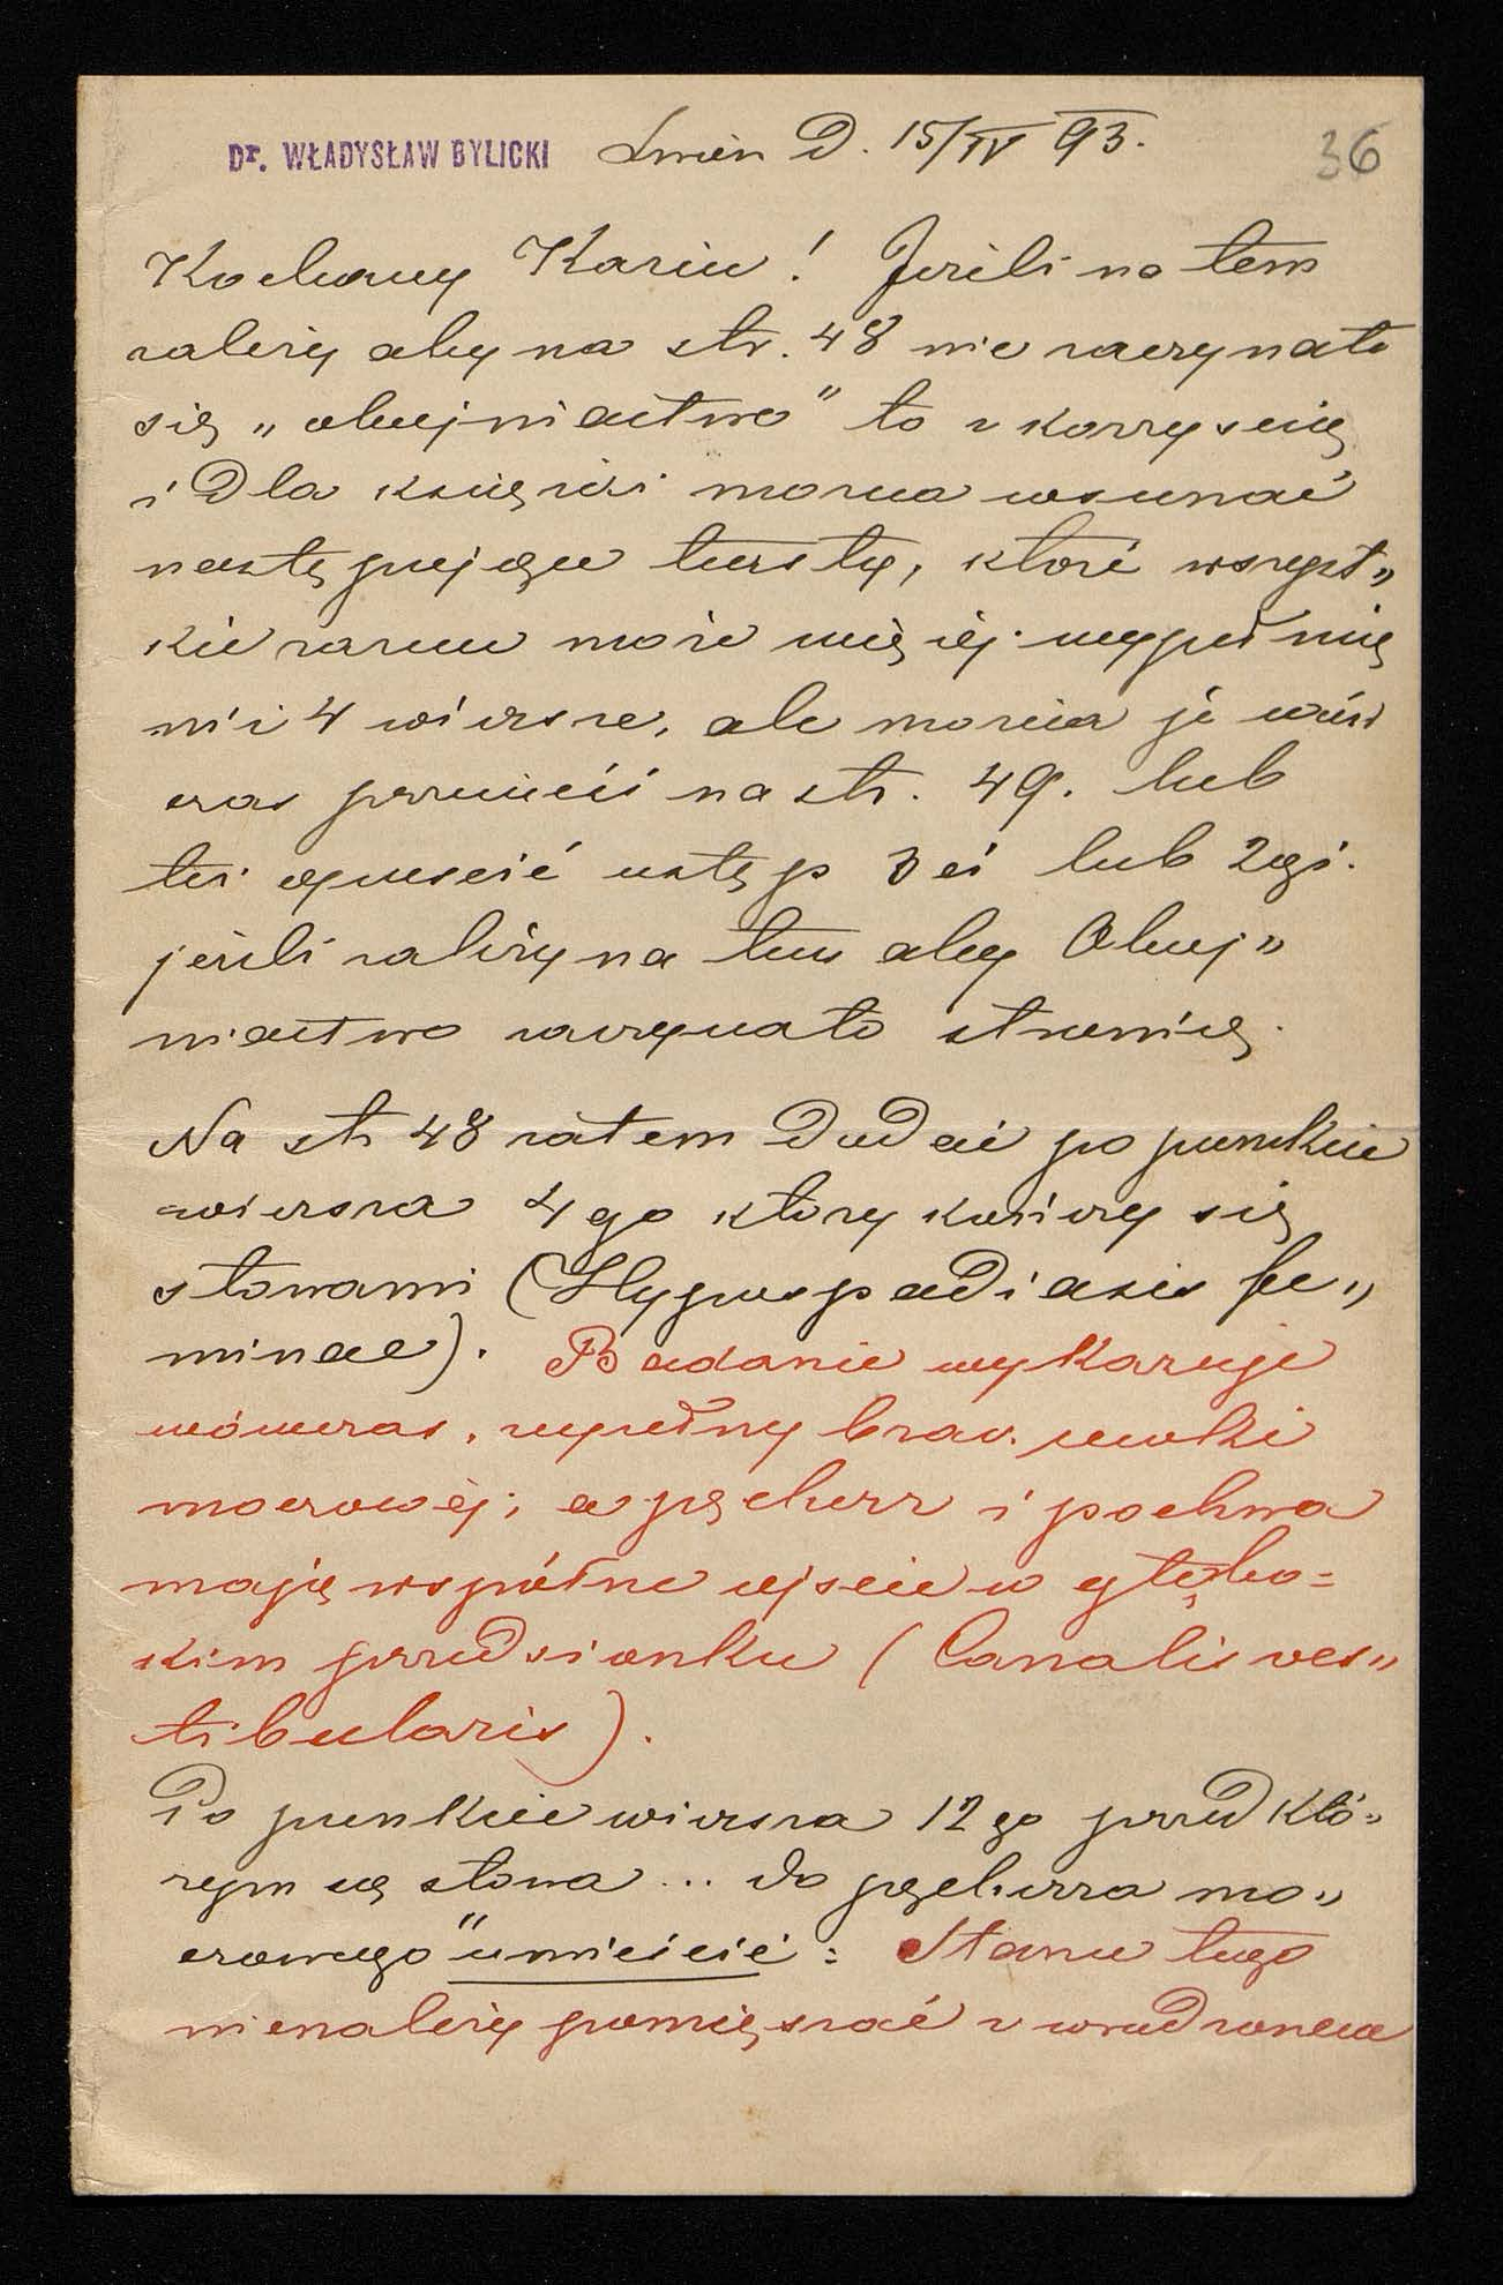 Dr. WŁADYSŁAW BYLICKI Lwów D. 15/IV 93. 36
Kochany Kaziu! Jeżeli na tem
zależy aby na str. 48 nie zaczynało
się „obojniactwo" to z korzyścią
i dla książki można wsunąć
następujące ustępy, które wszyst„
kie razem może więcej wypełnią
niż 4 wiersze, ale można je wów
czas przenieść na str. 49. lub
też opuścić ustęp 3ci lub 2gi.
jeżeli zależy na tem aby Oboj„
niactwo zaczynało stronicę.
Na str 48 zatem dodać po punkcie
wiersza 4go który kończy się
słowami (Hypospadiasis fe„
minae). Badanie wykazuje
wówczas, zupełny brak cewki
moczowej; a pęcherz i pochwa
mają wspólne ujście w głębo=
kim przedsionku (Canalis ves„
tibularis).
Po punkcie wiersza 12go przed któ„
rym są słowa ... do pęcherza mo„
czowego" umieścić: Stanu tego
nienależy pomięszać z